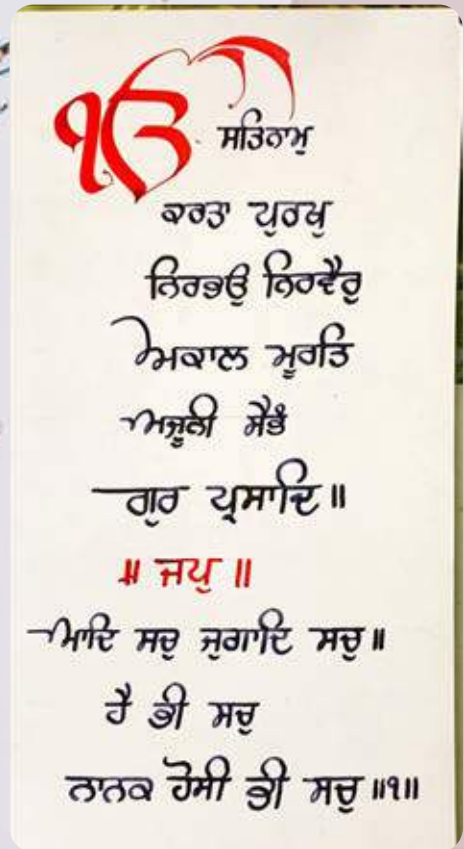 ੴ ਸਤਿਨਾਮੁ
ਕਰਤਾ ਪੁਰਖੁ
ਨਿਰਭਉ ਨਿਰਵੈਰੁ
ਅਕਾਲ ਮੂਰਤਿ
ਅਜੂਨੀ ਸੈਭੰ
ਗੁਰ ਪ੍ਰਸਾਦਿ॥
॥ ਜਪੁ ॥
ਆਦਿ ਸਚੁ ਜੁਗਾਦਿ ਸਚੁ॥
ਹੈ ਭੀ ਸਚੁ
ਨਾਨਕ ਹੋਸੀ ਭੀ ਸਚੁ ॥੧॥